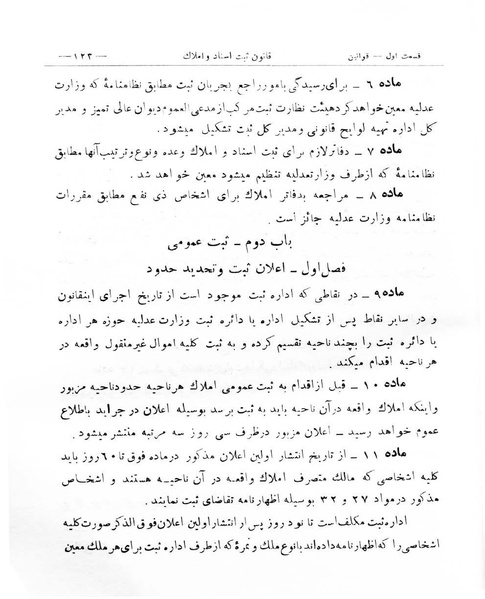 قسمت اول — قوانین
قانون ثبت اسناد و املاک
— ۱۲۳ —
ماده ۶ ـ برای رسیدگی بامور راجع بجریان ثبت مطابق نظامنامهٔ که وزارت
عدلیه معین خواهد کرد هیئت نظارت ثبت مرکب از مدعی العموم دیوان عالی تمیز و مدیر
کل اداره تهیه لوایح قانونی و مدیر کل ثبت تشکیل میشود .
ماده ۷ ـ دفاتر لازم برای ثبت اسناد و املاک و عده و نوع و ترتیب آنها مطابق
نظامنامهٔ که از طرف وزارت عدلیه تنظیم میشود معین خواهد شد .
ماده ۸ ـ مراجعه بدفاتر املاک برای اشخاص ذی نفع مطابق مقررات
نظامنامه وزارت عدلیه جائز است .
باب دوم ـ ثبت عمومی
فصل اول ـ اعلان ثبت و تحدید حدود
ماده ۹ ـ در نقاطی که اداره ثبت موجود است از تاریخ اجرای اینقانون
و در سایر نقاط پس از تشکیل اداره یا دائره ثبت وزارت عدلیه حوزه هر اداره
یا دائره ثبت را بچند ناحیه تقسیم کرده و به ثبت کلیه اموال غیر منقول واقعه در
هر ناحیه اقدام میکند .
ماده ۱۰ ـ قبل از اقدام به ثبت عمومی املاک هر ناحیه حدود ناحیه مزبور
و اینکه املاک واقعه در آن ناحیه باید به ثبت برسد بوسیله اعلان در جراید باطلاع
عموم خواهد رسید ـ اعلان مزبور در ظرف سی روز سه مرتبه منتشر میشود .
ماده ۱۱ ـ از تاریخ انتشار اولین اعلان مذکور در ماده فوق تا ۶۰ روز باید
کلیه اشخاصی که مالک متصرف املاک واقعه در آن ناحیه هستند و اشخاص
مذکور در مواد ۲۷ و ۳۲ بوسیله اظهارنامه تقاضای ثبت نمایند .
اداره ثبت مکلف است تا نود روز پس از انتشار اولین اعلان فوق الذکر صورت کلیه
اشخاصی را که اظهارنامه داده اند با نوع ملک و نمرهٔ که از طرف اداره ثبت برای هر ملک معین